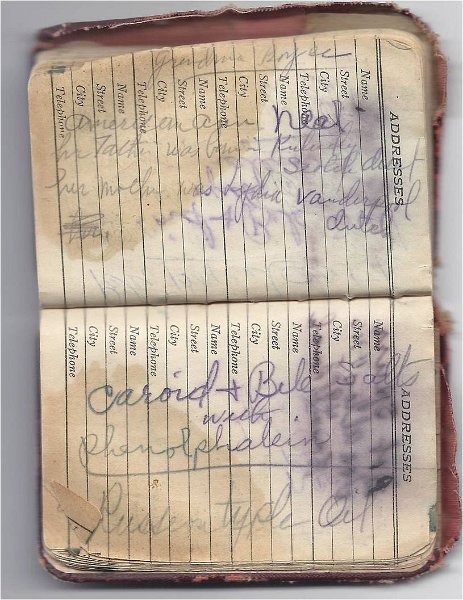 ADDRESSES
Name
Street
City
Telephone
Name
Street
City
Telephone
Name
Street
City
Telephone
Name
Street
City
Telephone
Grandma Royce
American ann Neal
her father was born in
Scotch
her mother was Lydia Vanderpool
ADDRESSES
Name
Street
City
Telephone
Name
Street
City
Telephone
Name
Street
City
Telephone
Name
Street
City
Telephone
Caroid + Bile Salts
with
phenolphalein
Russian type Oil